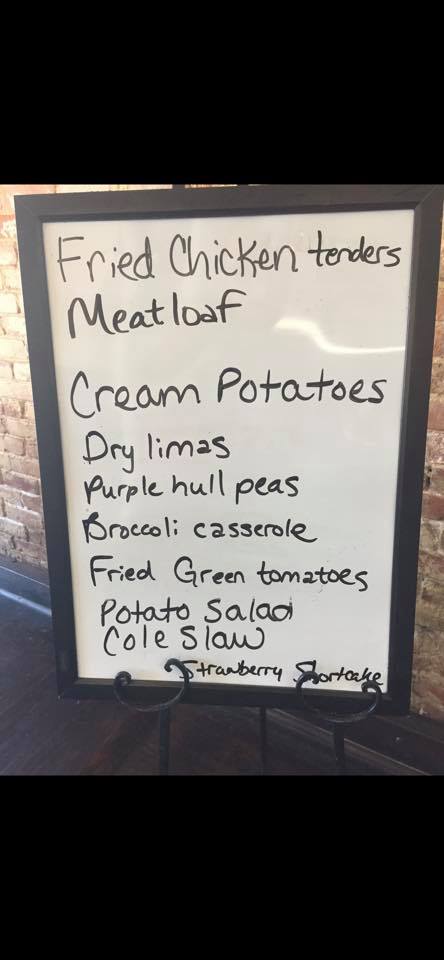 Fried Chicken tenders
Meatloaf
Cream Potatoes
Dry limas
Purple hull peas
Broccoli casserole
Fried Green tomatoes
Potato Salad
Cole Slaw
Strawberry Shortcake